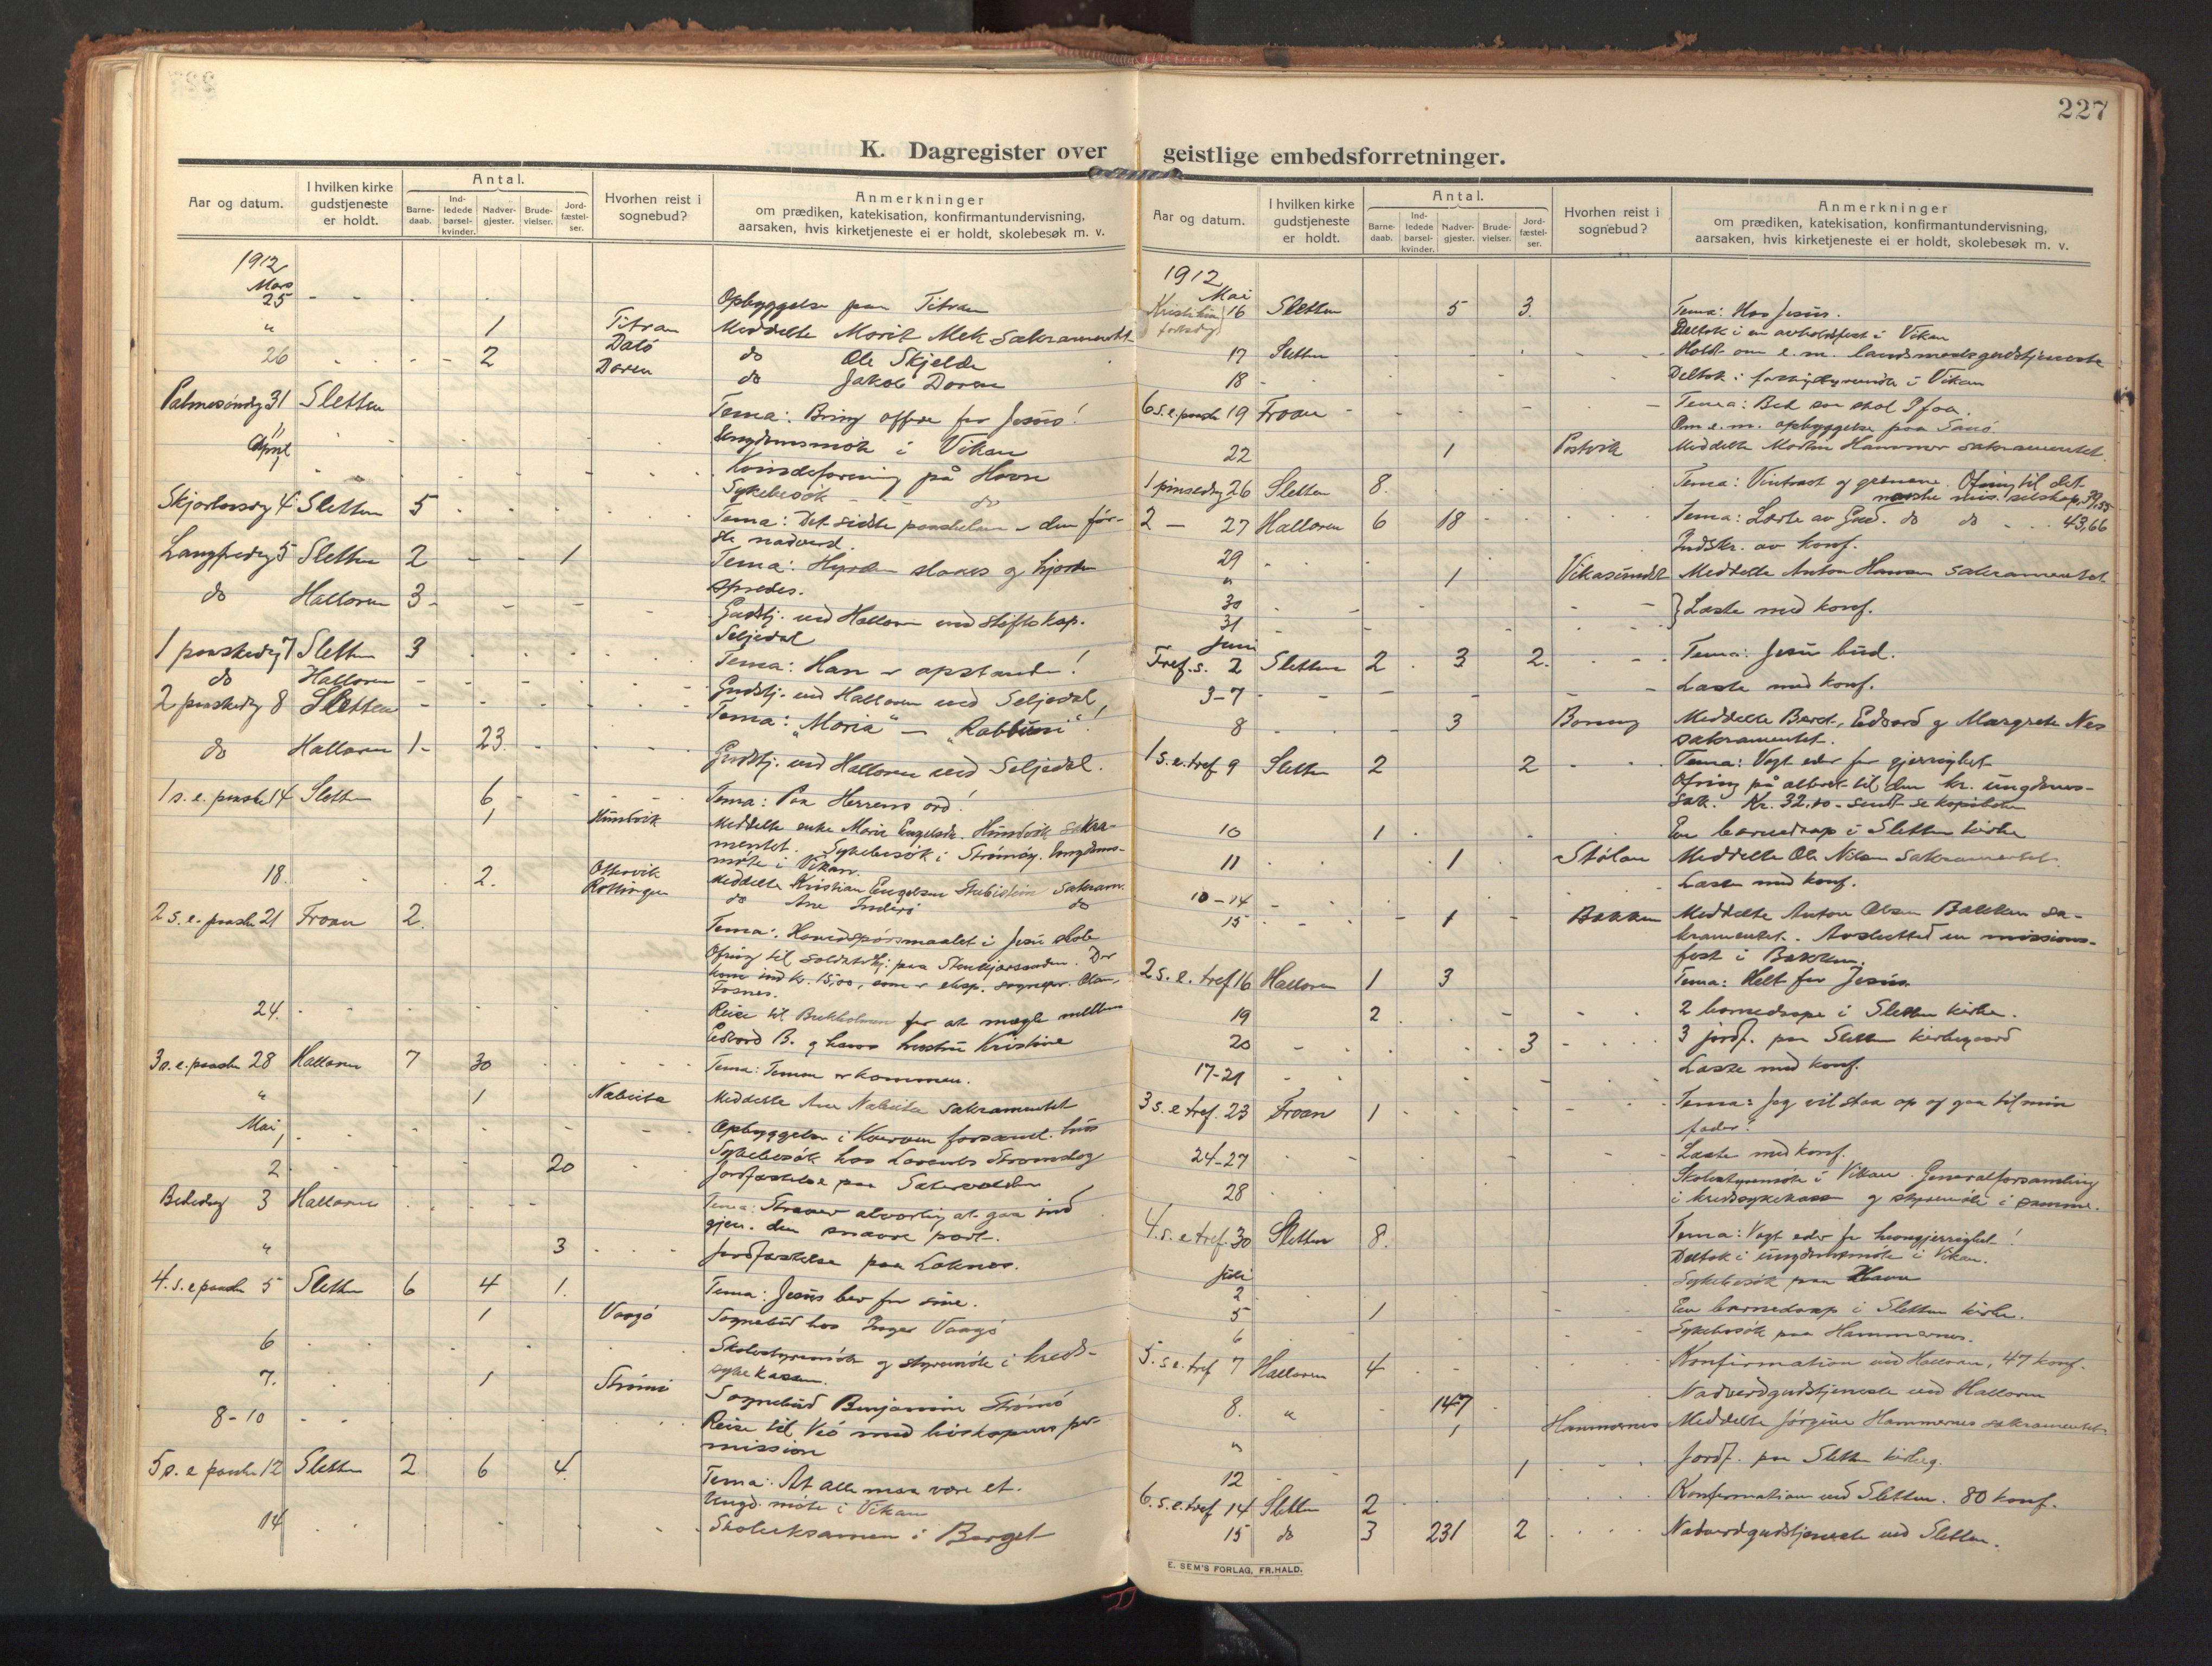 227
K. Dagregister over geistlige embedsforretninger.
Aar og datum.
I hvilken kirke gudstjeneste er holdt.
Antal.
Barne-daab.
Ind-ledede barsel-kvinder.
Nadver-gjester.
Brude-vielser.
Jord-fæstel-ser.
Hvorhen reist i sognebud?
Anmerkninger
om prædiken, katekisation, konfirmantundervisning,
aarsaken, hvis kirketjeneste ei er holdt, skolebesøk m. v.
1912
Mars
25 Opbyggelse paa Titran
" 1 Titran Meddelte Marit Mek sakramentet
26 2 Dalö do Ole Skjelde
Doren do Jakob Doren
Palmesöndag 31 Sletten Tema: Bring offere for Jesus!
" Ungdomsmöte i Vikan
April
1 Kvindeforening på Havn
Sykebesök do
Skjærtorsdag 4 Sletten 5 Tema: Det sidste paaskelam - denför-
ste nadverd.
Langfredag 5 Sletten 2 1 Tema: Hyrden slaaes og hjorden
spredes.
do Halloren 3 Gudstj. ved Halloren ved stiftskap.
Seljedal
1 paaskedag 7 Sletten 3 Tema: Han er opstanden!
do Halloren Gudstj. ved Halloren ved Seljedal
2 paaskedag 8 Sletten Tema: "Maria" - "Rabbuni"!
do Halloren 1 23 Gudstj. ved Halloren ved Seljedal.
1 s. e. paaske 14 Sletten 6 Tema: Paa Herrens ord!
1 Meddelte enke Marie sakra-
mentet. Sykebesök i Strömöy. Ungdoms-
möte i Vikan.
18. 2. Ottervik Meddelte Kristian Engelsen sakram.
Rottingen do Ane do
2 s. e. paaske 21 Froan 2. Tema: Hovedspörsmaalet i Jesu skole
Ofring til soldaterhj. paa Stenkjærsanden. Der
kom ind kr. 15,00, som er eksp. sognepr. Olan,
Fosnes.
24. Reise til Bukkholmen for at mægle mellem
Edvard B. og hans hustru Kristine
3 s. e. paaske 28 Halloren 7 30 Tema: Timen er kommen.
" 1 Nabeita Meddelte Ane Nabeita sakramentet
Mai
1 Opbyggelse i Kverven forsaml. hus
Sykebesök hos Laurents
2 20 Jordfæstelse paa
Bededag 3 Halloren Tema: Stræv alvorlig at gaa ind
gjen. den snævre port.
" 3 Jordfæstelse paa Loknes.
4. s. e paaske 5 Sletten 6 4 1. Tema: Jesus bev for sine.
1 Vaagö Sognebud hos Inger Vaagö
6 Skolestyremöte og styremöte i kreds-
sykekassen.
7. 1 Strömö Sognebud Benjamine Strömö
8-10 Reise til Veö med biskopens per-
mission
5 s. e paaske 12 Sletten 2 6 4 Tema: At alle maa være et.
Ungd. möte i Vikan
14 Skoleeksamen i Berget
Aar og datum.
I hvilken kirke gudstjeneste er holdt.
Antal.
Barne-daab.
Ind-ledede barsel-kvinder.
Nadver-gjester.
Brude-vielser.
Jord-fæstel-ser.
Hvorhen reist i sognebud?
Anmerkninger
om prædiken, katekisation, konfirmantundervisning,
aarsaken, hvis kirketjeneste ei er holdt, skolebesøk m. v.
1912
Mai
Kristi him. 16 Sletten 5 3. Tema: Hos Jesus.
Deltok i en avholdsfest i Vikan
17 Sletten Holdt om e. m. landsmaalsgudstjeneste
18 Deltok i i Vikan
6 s. e. paaske 19 Froan Tema: Bed saa skal I faa.
Om e. m. opbyggelse paa Sauö
22 1 Postvik Meddelte Martin Hammer sakramentet.
1 pinsedag 26 Sletten 8. Tema: Vintræet og grenene. Ofring til det
norske mis. selskap, 39,55
2 - 27 Halloren 6 18 Tema: Lærte av Gud. do do 43,66
Indskr. av konf.
29
" 1 Vikasundet Meddelte Anton Hansen sakramentet
30
31 } Læste med konf.
Juni
Tref. s. 2 Sletten 2 3 2. Tema: Jesu bud.
3-7 Læste med konf.
8 3 Meddelte Berct, Edvard og Margrete Nes
sakramentet.
1 s. e. tref. 9 Sletten 2 2 Tema: Vogt eder for gjerrighet
Ofring på alteret til den kr. ungdoms-
sak. Kr. 32.10 - sendt
10 1 En barnedaap i Sletten kirke
11 1 Stölan Meddelte Ole Nilsen sakramentet.
10-14 Læste med konf.
15 1 Bakken Meddelte Anton Olsen Bakken sa-
kramentet. Avsluttet en missions-
fest i Bakken.
2 s. e. tref 16 Halloren 1 3 Tema: Helt for Jesus.
19 2 2 barnedaape i Sletten kirke.
20 3 3 jordf. paa Sletten kirkegaard
17-21 Læste med konf.
3 s. e tref. 23 Froan 1 Tema: Jeg vil staa op og gaa til min
fader!
24-27 Læste med konf.
28 Skolestyremöte i Vikan. Generalforsamling
i kredssykekassen og styremöte i samme.
4. s. e tref. 30 Sletten 8. Tema: Vogt eder for havegjerrighet!
Deltok i ungdomsmöte i Vikan.
Juli
2 Sykebesök paa Havn
5 1 En barnedaap i Sletten kirke.
6 Sykebesök paa Hammernes.
5. s. e. tref 7 Halloren 4 Konfirmation ved Halloren, 47 konf.
8. " 147 Nadverdgudstjeneste ved Halloren
" 1 Hammernes Meddelte Jörgine Hammernes sakramentet
12 1 Jordf. paa Sletten kirkeg.
6. s. e. tref 14 Sletten 2 Konfirmation ved Sletten. 80 konf.
15 do 3 231 2 Nadverdgudstjeneste ved Sletten.
E. SEM'S FORLAG, FR.HALD.